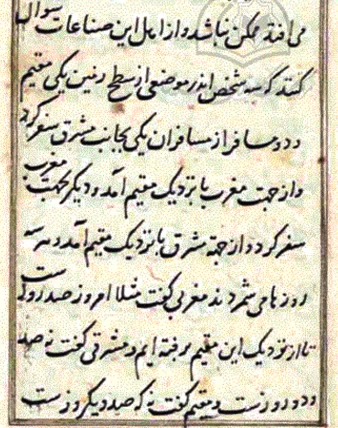 می افتد ممکن نباشد و از اهل این صناعات سوال
کنند که سه شخص اندر موضعی از سطح زمین یکی مقیم
و دو مسافر از مسافران یکی بجانب مشرق سفر کرد
و از جهت مغرب با نزدیک مقیم آمد و دیگر بجهت مغرب
سفر کرد و از جهة مشرق با نزدیک مقیم آمد و هر سه
روزها می شمردند مغربی گفت مثلا امروز صد روز است
تا از نزدیک این مقیم برفته ایم و مشرقی گفت نه صد
و دو روز است و مقیم گفت نه که صد و یک روز است